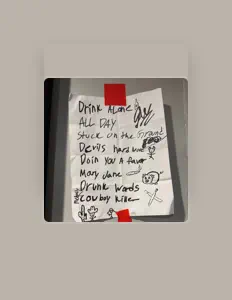 Drink Alone
ALL DAY
Stuck on the Ground
Devils hard
Doin You A favor
Mary Jane
Drunk Words
Cowboy Killer